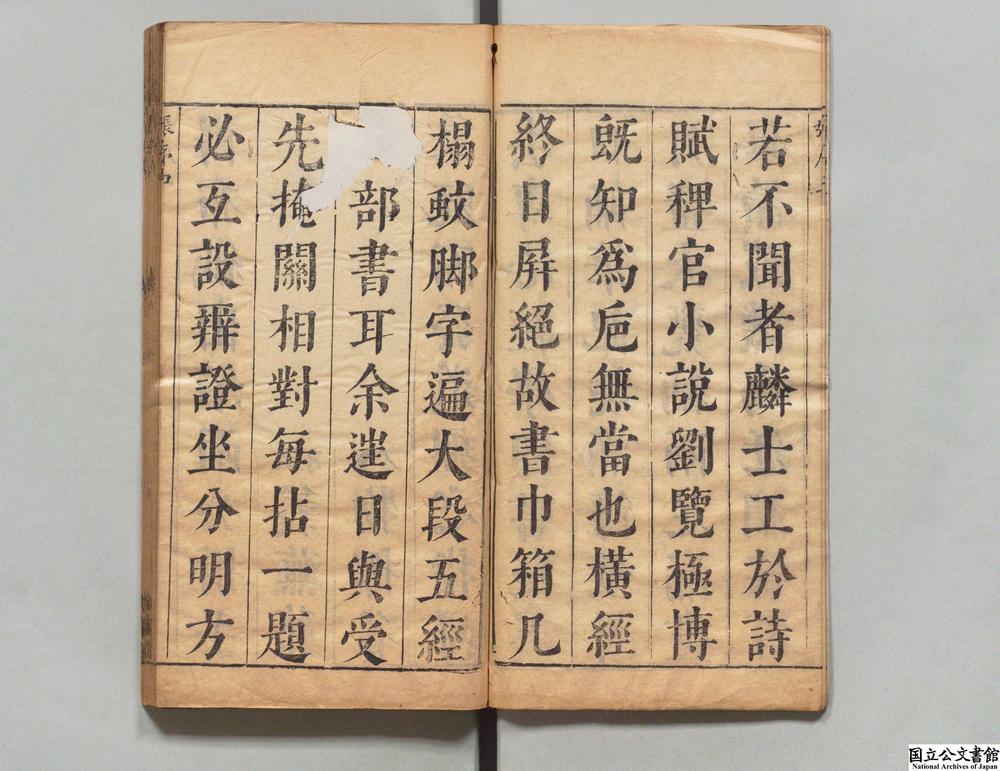 若不聞者麟士工於詩
賦稗官小說劉覽極博
既知爲巵無當也橫經
終日屏絕故書巾箱几
榻蚊脚字遍大段五經
部書耳余遳日與受
先掩關相對每拈一題
必互設辨證坐分明方
張序四
国立公文書館
National Archives of Japan